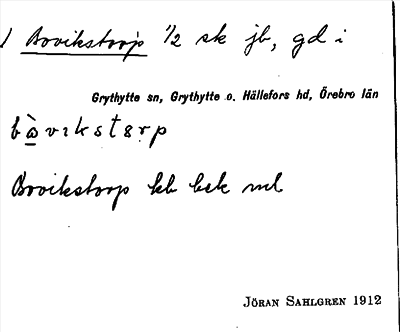 1 Bovikstorp 1/2 sk jb, gd i
Grythytte sn, Grythytte o. Hällefors hd, Örebro län
bò̲vikstərp
Bovikstorp kb bek ml
JÖRAN SAHLGREN 1912